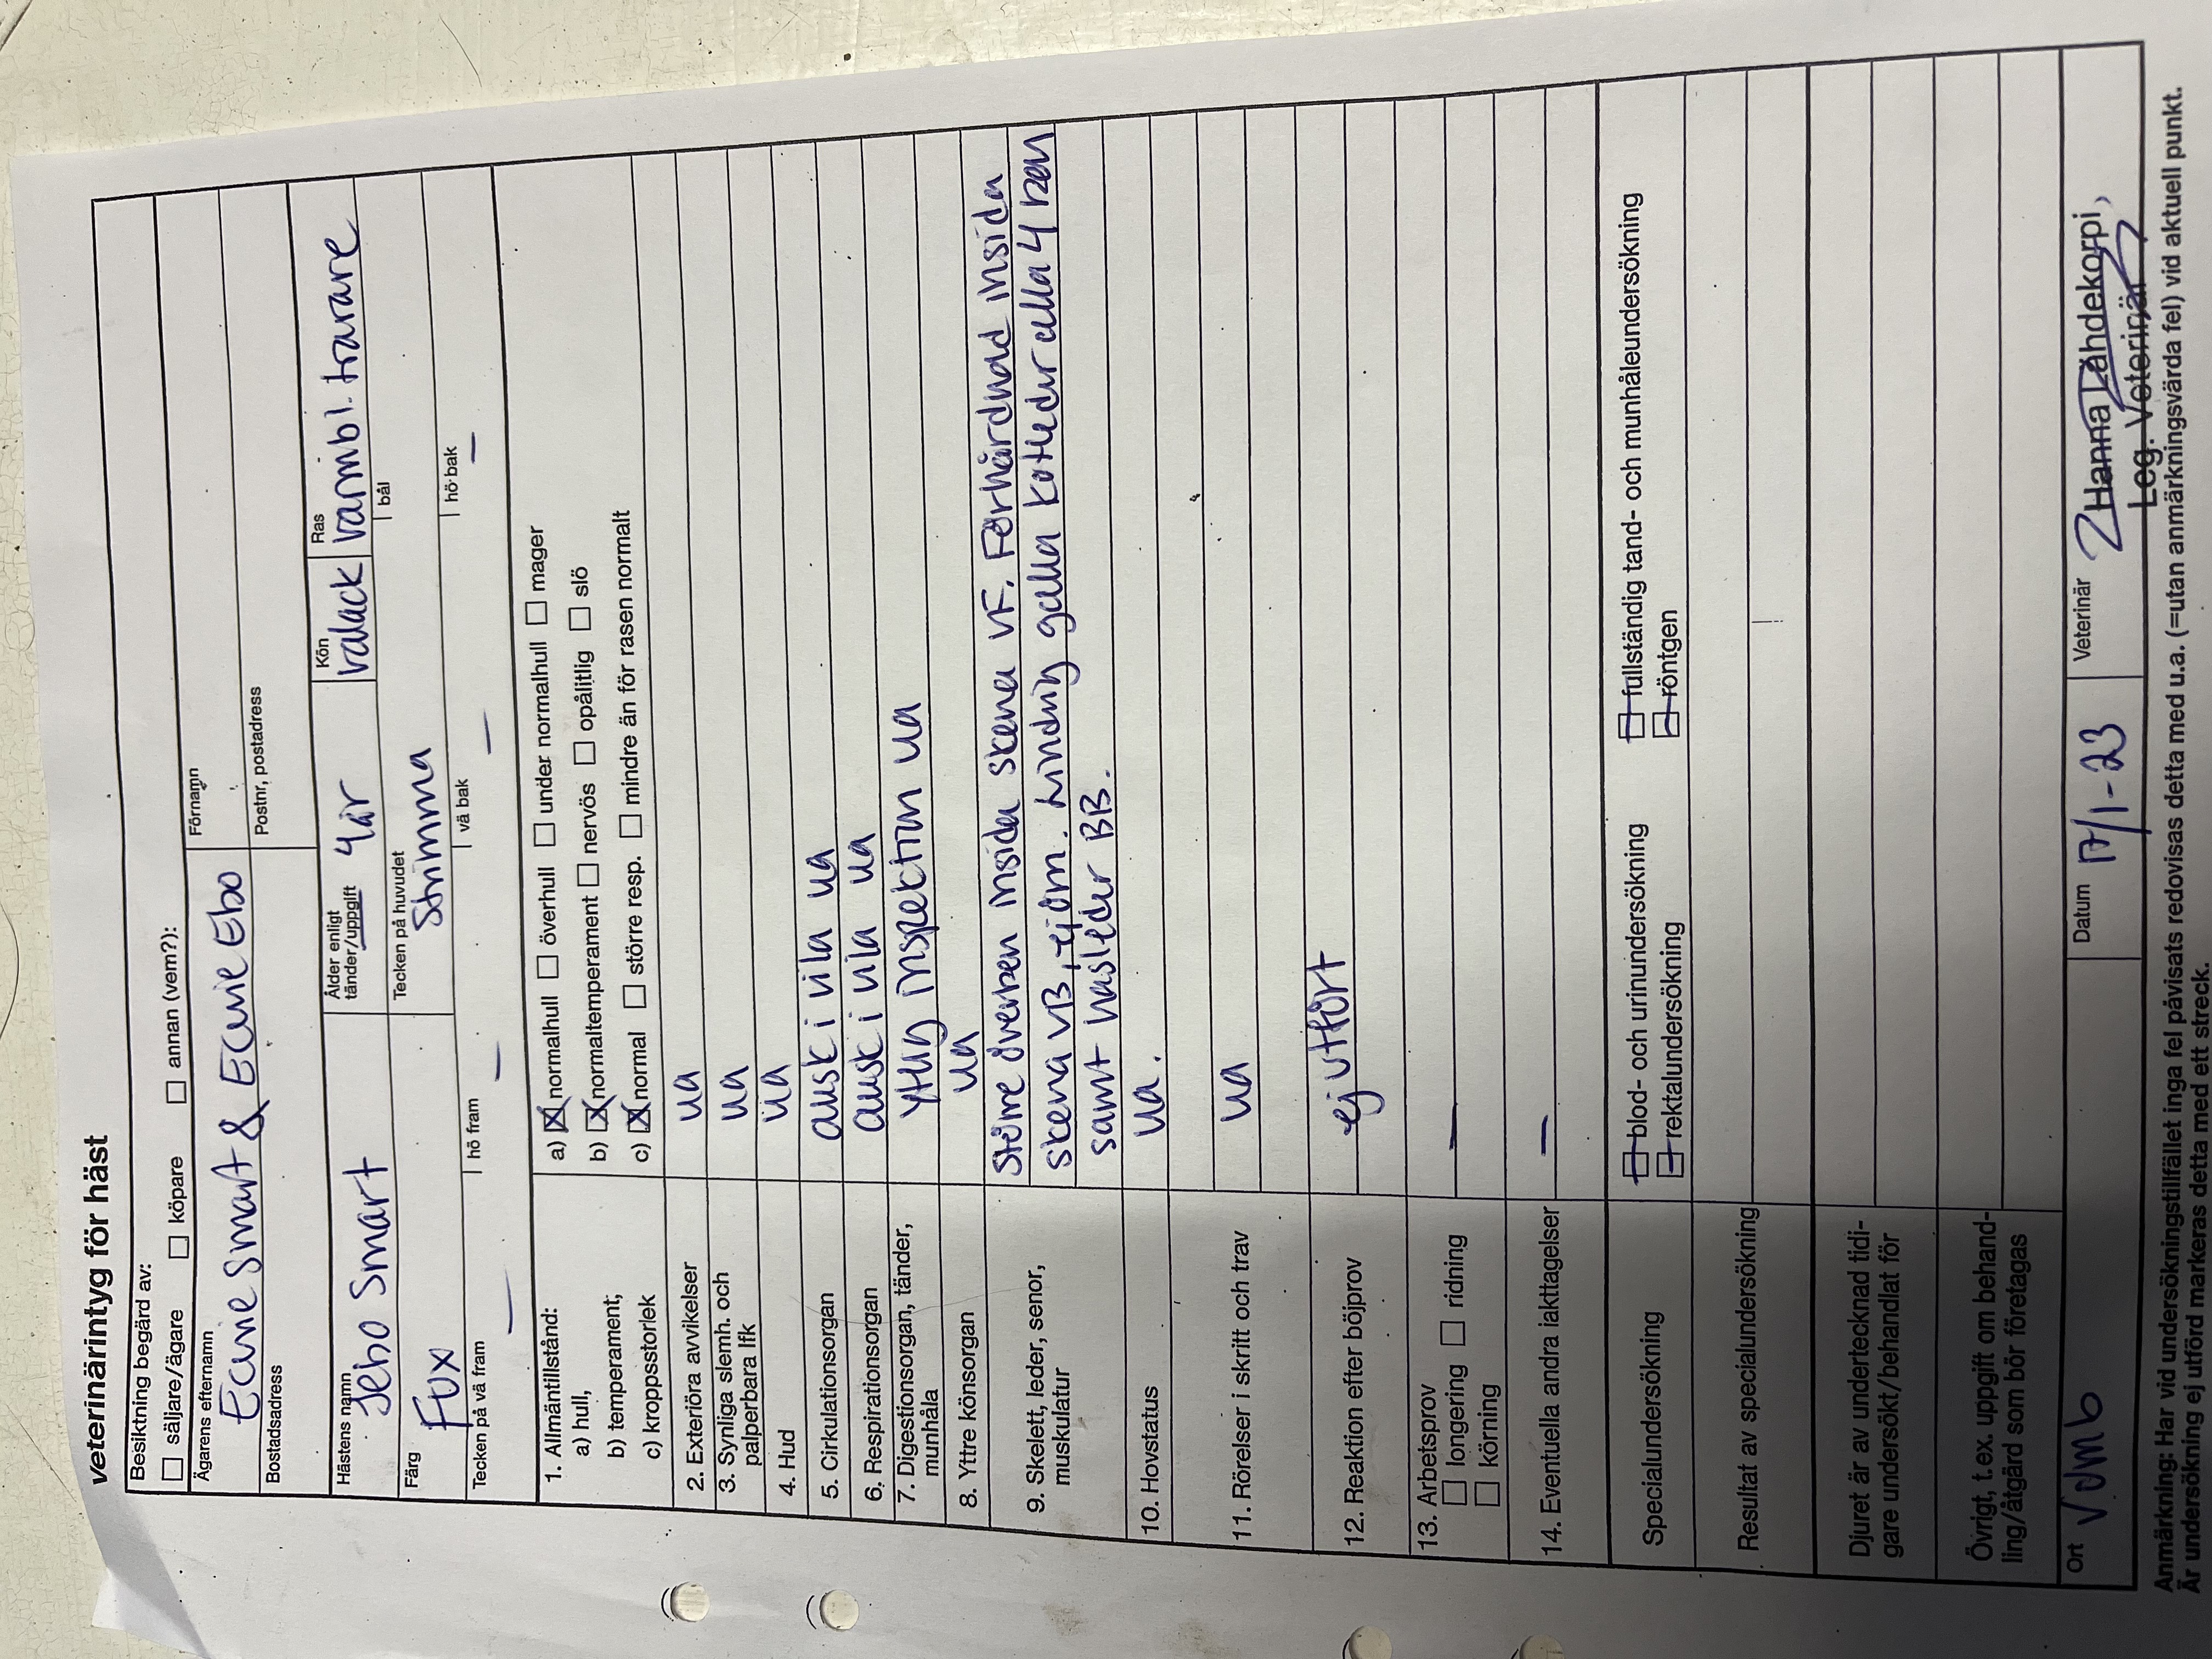 veterinärintyg för häst
Besiktning begärd av:
säljare/ägare köpare annan (vem?):
Ägarens efternamn Förnamn
Ecurie Smart & Ecurie Ebo
Bostadsadress Postnr, postadress
Hästens namn Ålder enligt tänder/uppgift Kön Ras
Jebo Smart 4 år valack varmbl. travare
Färg Tecken på huvudet bål
Fux Strimma
Tecken på vä fram hö fram vä bak hö bak
— — — —
1. Allmäntillstånd:
a) hull, a) normalhull överhull under normalhull mager
b) temperament; b) normaltemperament nervös opålitlig slö
c) kroppsstorlek c) normal större resp. mindre än för rasen normalt
2. Exteriöra avvikelser ua
3. Synliga slemh. och palperbara lfk ua
4. Hud ua
5. Cirkulationsorgan ausk i vila ua
6. Respirationsorgan ausk i vila ua
7. Digestionsorgan, tänder, munhåla ytlig inspektion ua
8. Yttre könsorgan ua
9. Skelett, leder, senor, muskulatur Större överben insida skena VF. Förhårdnad insida
skena VB, ej öm. Lindrig galla kotleder alla 4 ben
samt hasleder BB.
10. Hovstatus ua.
11. Rörelser i skritt och trav ua
12. Reaktion efter böjprov ej utfört
13. Arbetsprov —
longering ridning
körning
14. Eventuella andra iakttagelser —
Specialundersökning blod- och urinundersökning fullständig tand- och munhåleundersökning
rektalundersökning röntgen
Resultat av specialundersökning
Djuret är av undertecknad tidi-
gare undersökt/behandlat för
Övrigt, t.ex. uppgift om behand-
ling/åtgärd som bör företagas
Ort Datum 17/1-23 Veterinär Hanna Lähdekorpi,
Leg. Veterinär
Anmärkning: Har vid undersökningstillfället inga fel påvisats redovisas detta med u.a. (=utan anmärkningsvärda fel) vid aktuell punkt.
Är undersökning ej utförd markeras detta med ett streck.